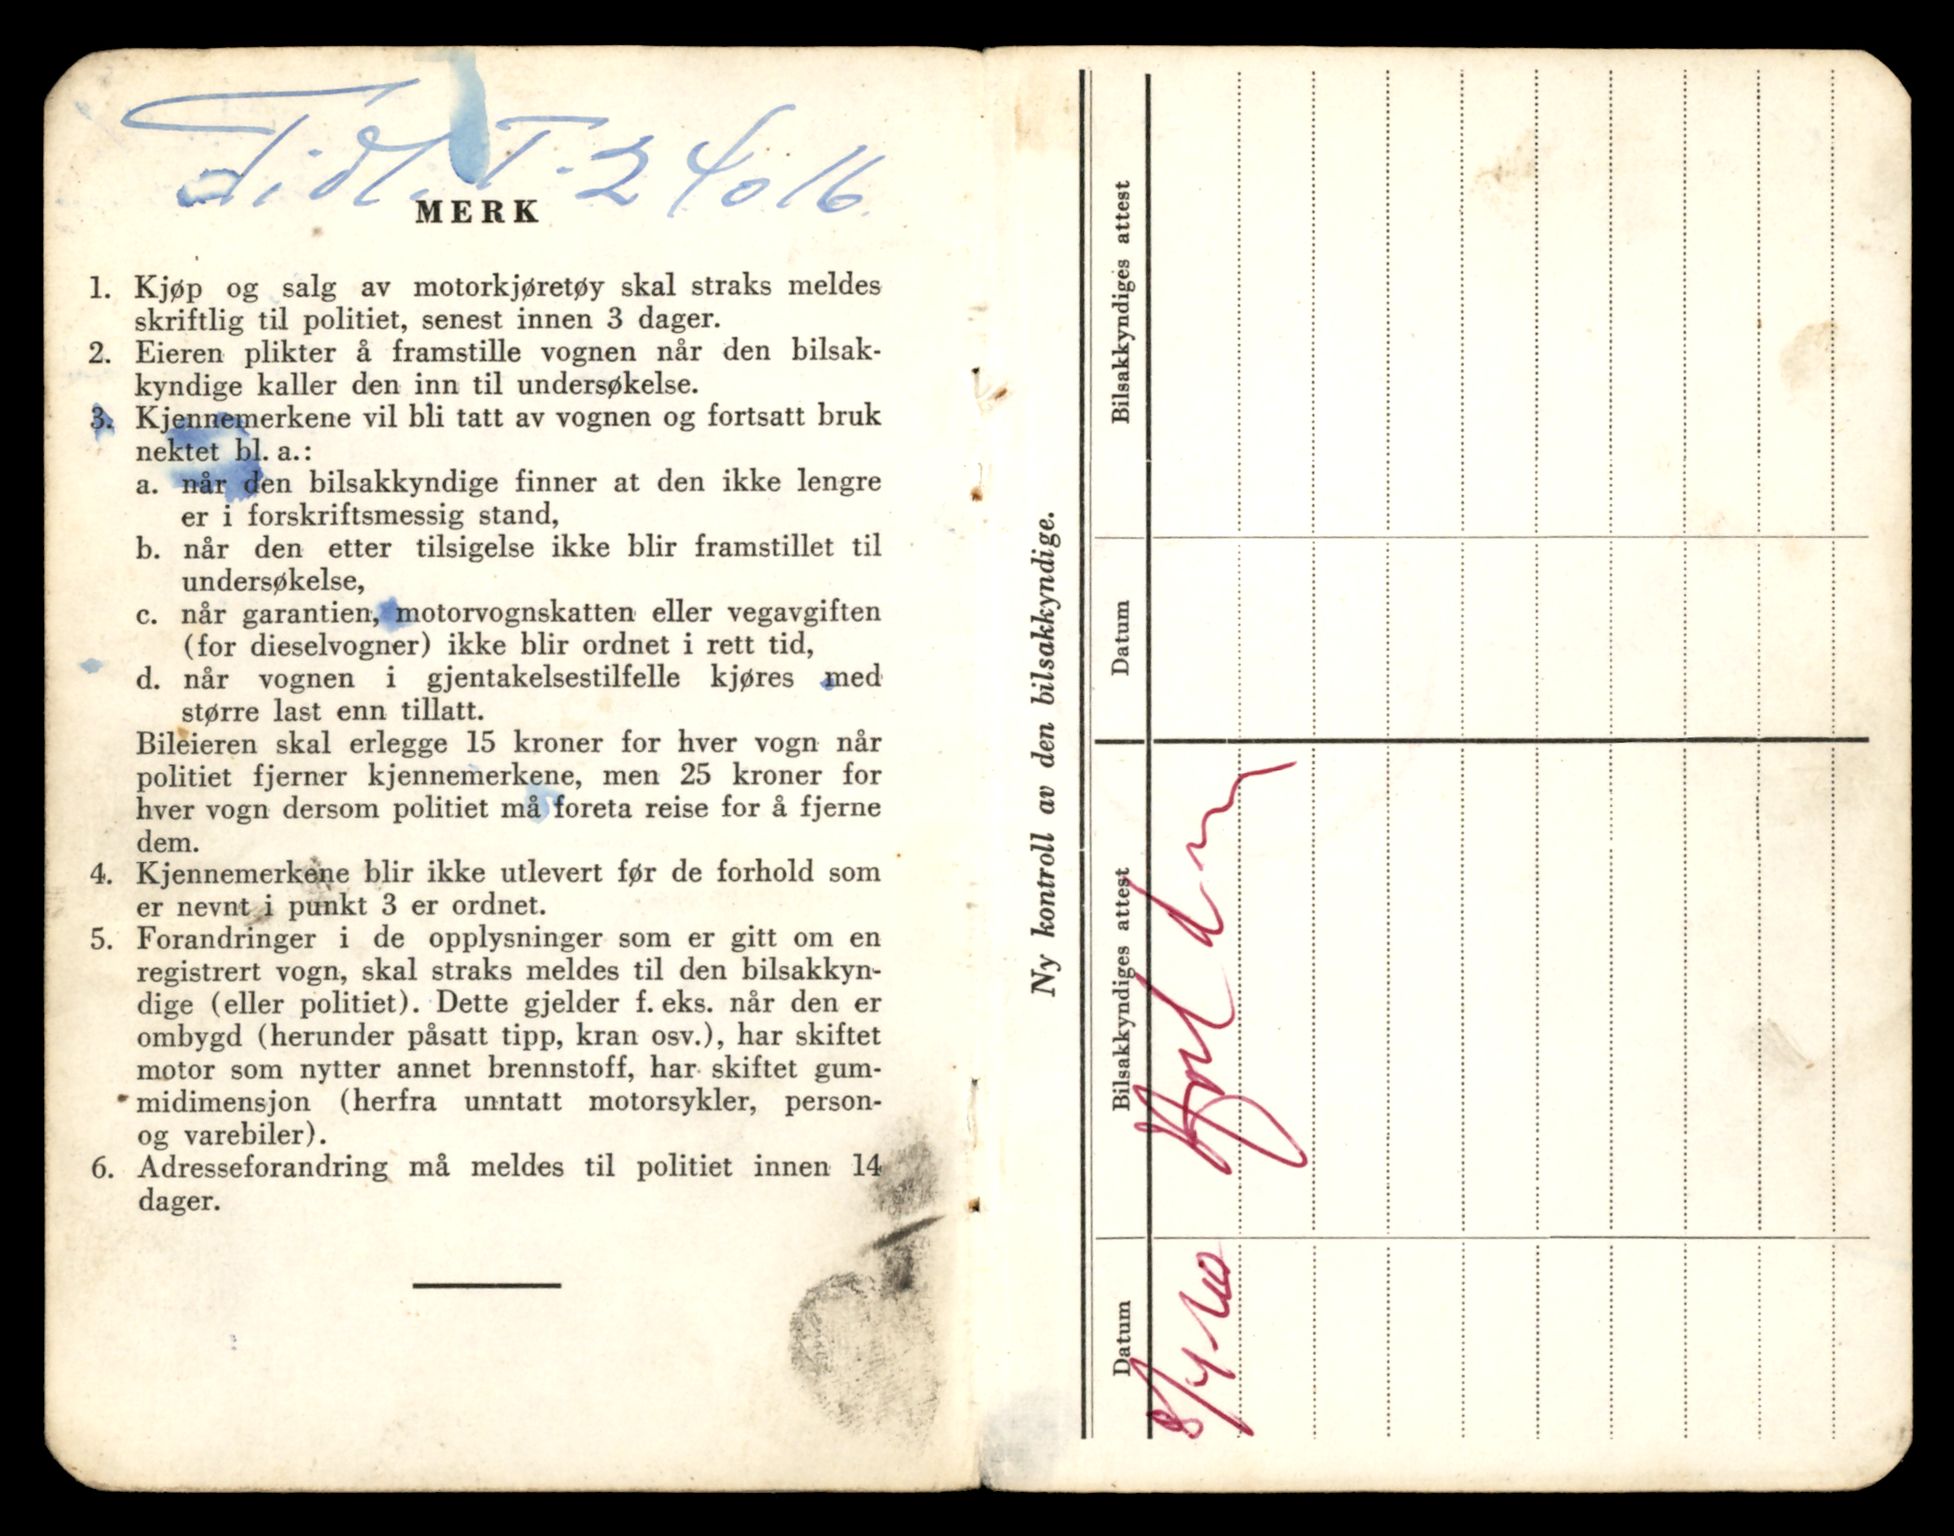 Tidl. T-24016
MERK
1. Kjøp og salg av motorkjøretøy skal straks meldes
skriftlig til politiet, senest innen 3 dager.
2. Eieren plikter å framstille vognen når den bilsak-
kyndige kaller den inn til undersøkelse.
3. Kjennemerkene vil bli tatt av vognen og fortsatt bruk
nektet bl. a.:
a. når den bilsakkyndige finner at den ikke lengre
er i forskriftsmessig stand,
b. når den etter tilsigelse ikke blir framstillet til
undersøkelse,
c. når garantien, motorvognskatten eller vegavgiften
(for dieselvogner) ikke blir ordnet i rett tid,
d. når vognen i gjentakelsestilfelle kjøres med
større last enn tillatt.
Bileieren skal erlegge 15 kroner for hver vogn når
politiet fjerner kjennemerkene, men 25 kroner for
hver vogn dersom politiet må foreta reise for å fjerne
dem.
4. Kjennemerkene blir ikke utlevert før de forhold som
er nevnt i punkt 3 er ordnet.
5. Forandringer i de opplysninger som er gitt om en
registrert vogn, skal straks meldes til den bilsakkyn-
dige (eller politiet). Dette gjelder f. eks. når den er
ombygd (herunder påsatt tipp, kran osv.), har skiftet
motor som nytter annet brennstoff, har skiftet gum-
midimensjon (herfra unntatt motorsykler, person-
og varebiler).
6. Adresseforandring må meldes til politiet innen 14
dager.
Ny kontroll av den bilsakkyndige.
Datum
Bilsakkyndiges attest
Datum
Bilsakkyndiges attest